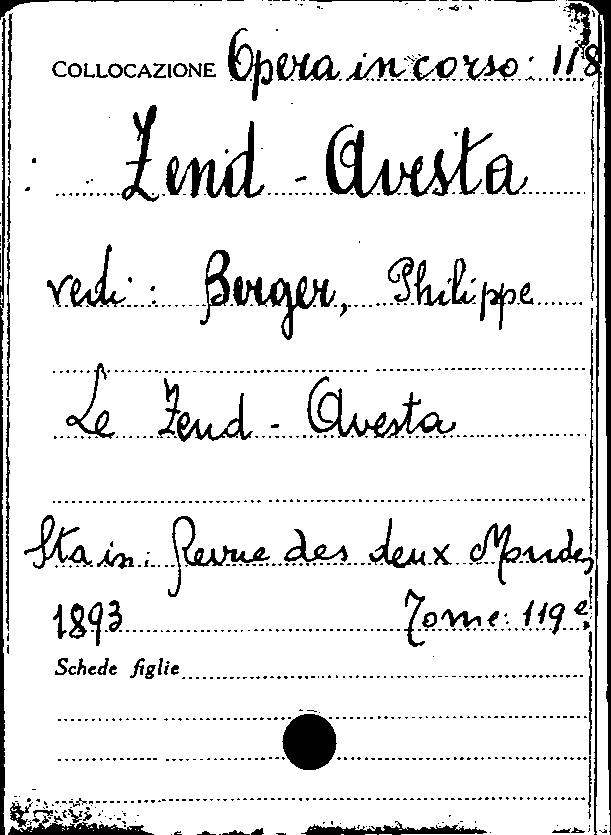 COLLOCAZIONE Opera in corso: 118
Zend - Avesta
vedi: Berger, Philippe
Le Zend - Avesta
Sta in: Revue des deux Mondes,
1893 Tome: 119e
Schede figlie